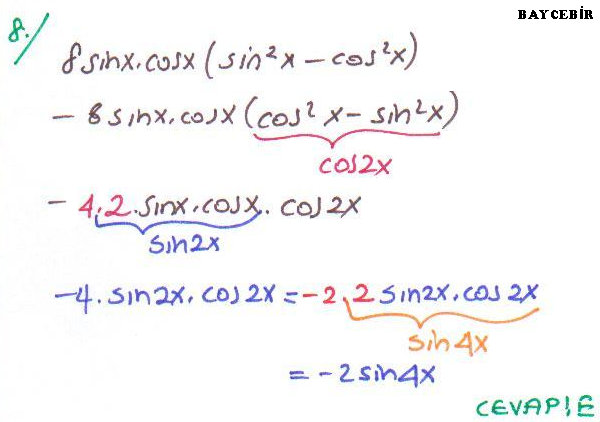 BAYCEBİR
8./
8sinx.cosx(sin²x-cos²x)
- 8sinx.cosx(cos²x-sin²x)
cos2x
- 4.2.sinx.cosx.cos2x
sin2x
-4.sin2x.cos2x=-2.2sin2x.cos2x
sin4x
=-2sin4x
CEVAP!E